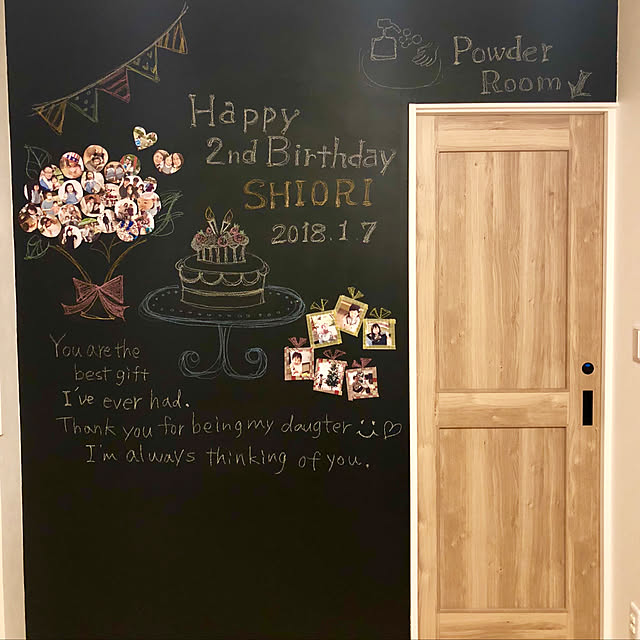 Powder
Room
Happy
2nd Birthday
SHIORI
2018.1.7
You are the
best gift
I've ever had.
Thank you for being my daugter
I'm always thinking of you.